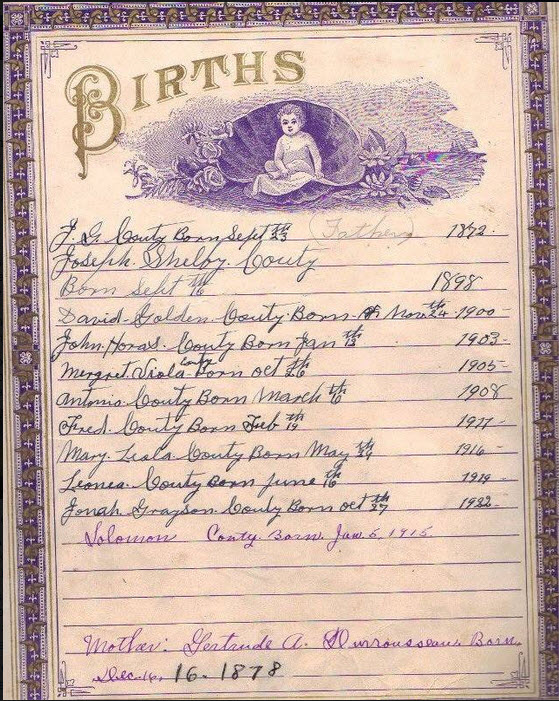 BIRTHS
J. G. Couty Born Sept 23th (Father) 1872
Joseph Shelby Couty
Born Sept 16th 1898
David Golden Couty Born Nov. 24th 1900
John Horas Couty Born Jan 13th 1903
Mergret Viola Couty Born oct 26th 1905
Antonio Couty Born March 6th 1908
Fred Couty Born Feb 19th
Mary Leola Couty Born May 24th 1916
Leonea Couty Born June 16th 1919
Jonah Grayson Couty Born oct 27th 1922
Solomon Couty Born Jan 5, 1915
Mother: Gertrude A. Born
Dec 16. 1878